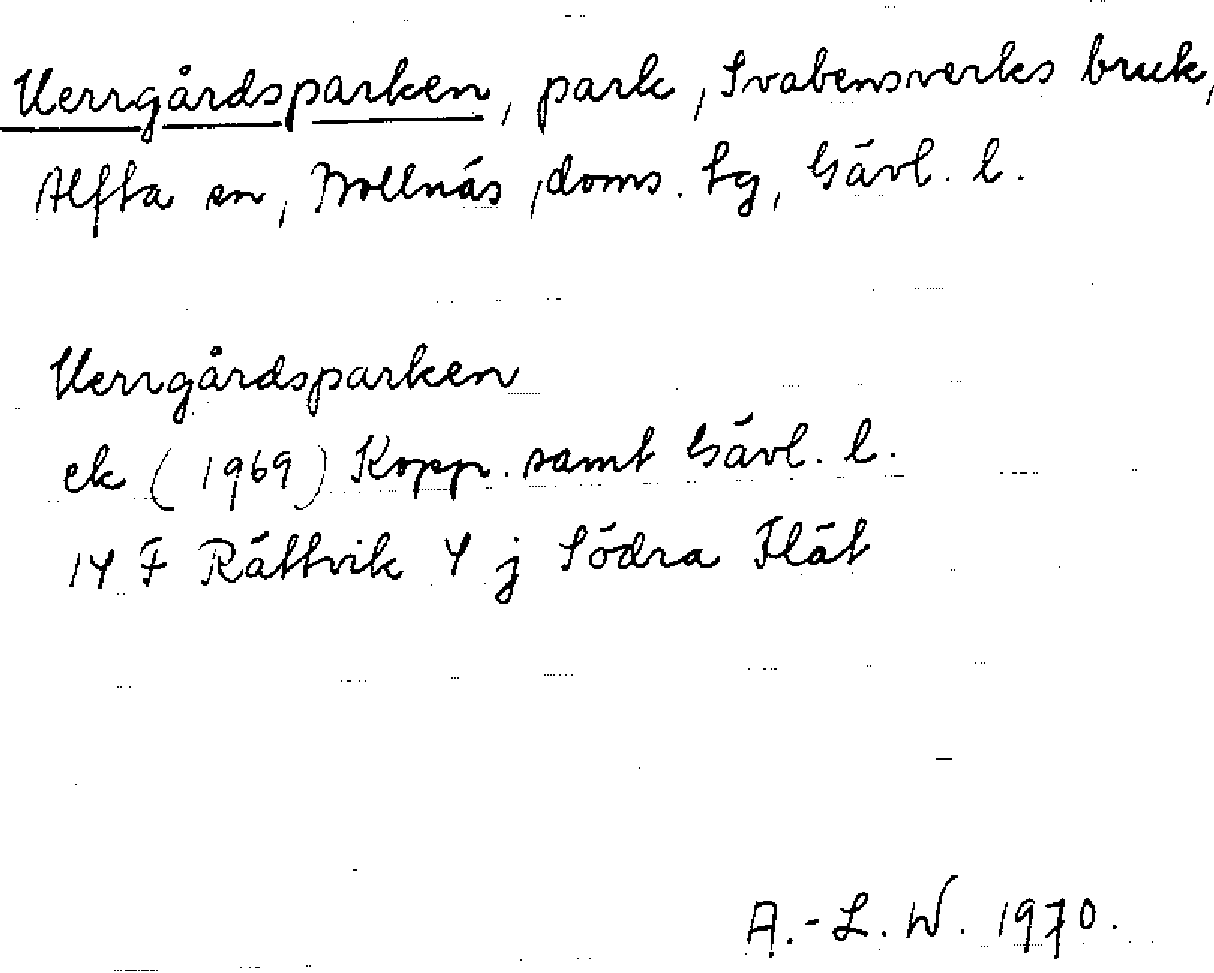 Herrgårdsparken, park, Svabensverks bruk,
Alfta sn, Bollnäs doms. tg, Gävl. l.
Herrgårdsparken
ek (1969) Kopp. samt Gävl. l.
14 F Rättvik 4 j Södra Flät
A.-L. W. 1970.